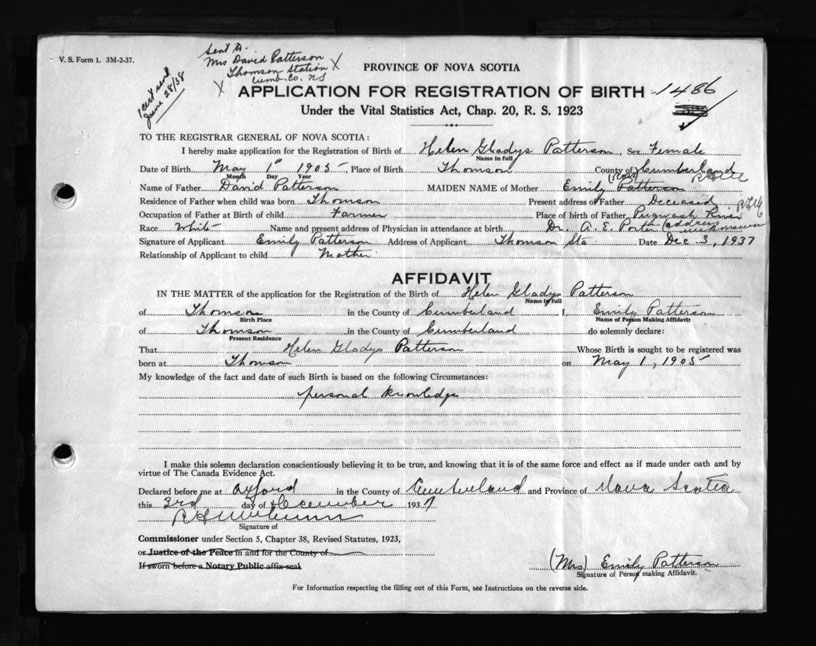 V. S. Form 1. 3M-2-37.
Sent to
Mrs David Patterson
Thomson Station X
X Cumb. Co. NS
1 cert sent
June 28/38
PROVINCE OF NOVA SCOTIA
APPLICATION FOR REGISTRATION OF BIRTH 1486
Under the Vital Statistics Act, Chap. 20, R. S. 1923
TO THE REGISTRAR GENERAL OF NOVA SCOTIA:
I hereby make application for the Registration of Birth of Helen Gladys Patterson, Sex Female
Name in full
Date of Birth May 1st 1905 Place of Birth Thomson County of Cumberland
Month Day Year
Name of Father David Patterson MAIDEN NAME of Mother Emily Patterson
Residence of Father when child was born Thomson Present address of Father Deceased
Occupation of Father at Birth of child Farmer Place of birth of Father Pugwash River
Race White Name and present address of Physician in attendance at birth Dr. A. E. Porter (address unknown
Signature of Applicant Emily Patterson Address of Applicant Thomson Sta Date Dec 3, 1937
Relationship of Applicant to child Mother
AFFIDAVIT
IN THE MATTER of the application for the Registration of the Birth of Helen Gladys Patterson
Name in full
of Thomson in the County of Cumberland I, Emily Patterson
Birth Place Name of Person Making Affidavit
of Thomson in the County of Cumberland do solemnly declare:
Present Residence
That Helen Gladys Patterson Whose Birth is sought to be registered was
born at Thomson on May 1, 1905
My knowledge of the fact and date of such Birth is based on the following Circumstances:
personal knowledge
I make this solemn declaration conscientiously believing it to be true, and knowing that it is of the same force and effect as if made under oath and by
virtue of The Canada Evidence Act.
Declared before me at Oxford in the County of Cumberland and Province of Nova Scotia
this 3rd day of December 1937
Signature of
Commissioner under Section 5, Chapter 38, Revised Statutes, 1923,
or Justice of the Peace in and for the County of
If sworn before a Notary Public affix seal
(Mrs) Emily Patterson
Signature of Person making Affidavit.
For Information respecting the filling out of this Form, see Instructions on the reverse side.